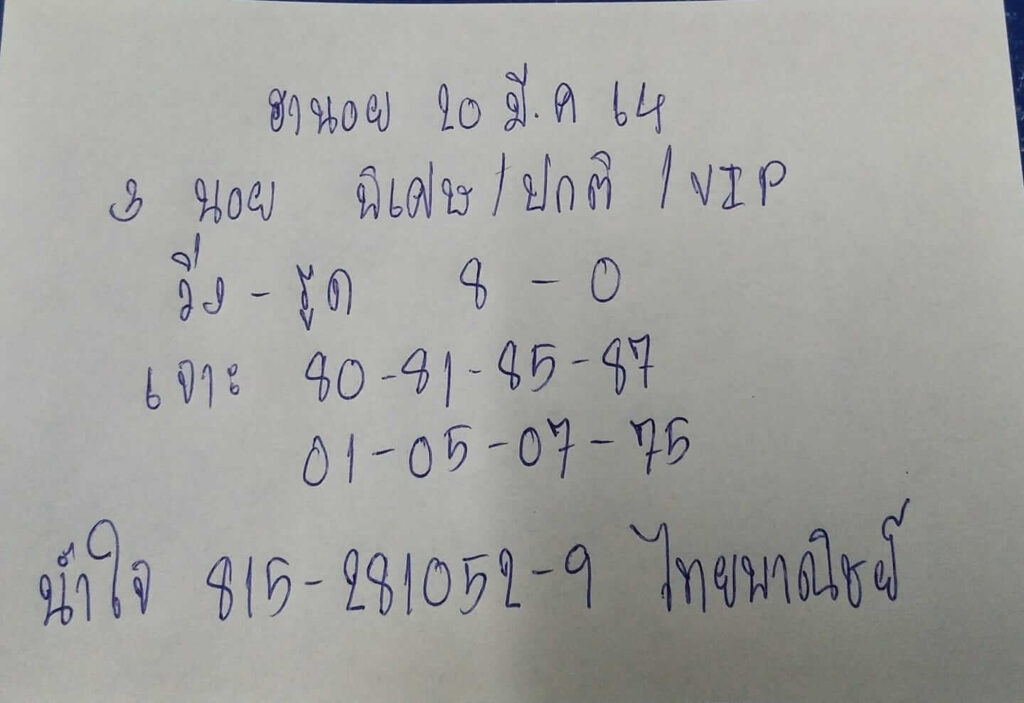 ฮานอย 20 มี.ค 64
3 นอย พิเศษ/ปกติ/VIP
วิ่ง-รูด 8-0
เจาะ 80-81-85-87
01-05-07-75
น้ำใจ 815-281052-9 ไทยพาณิชย์